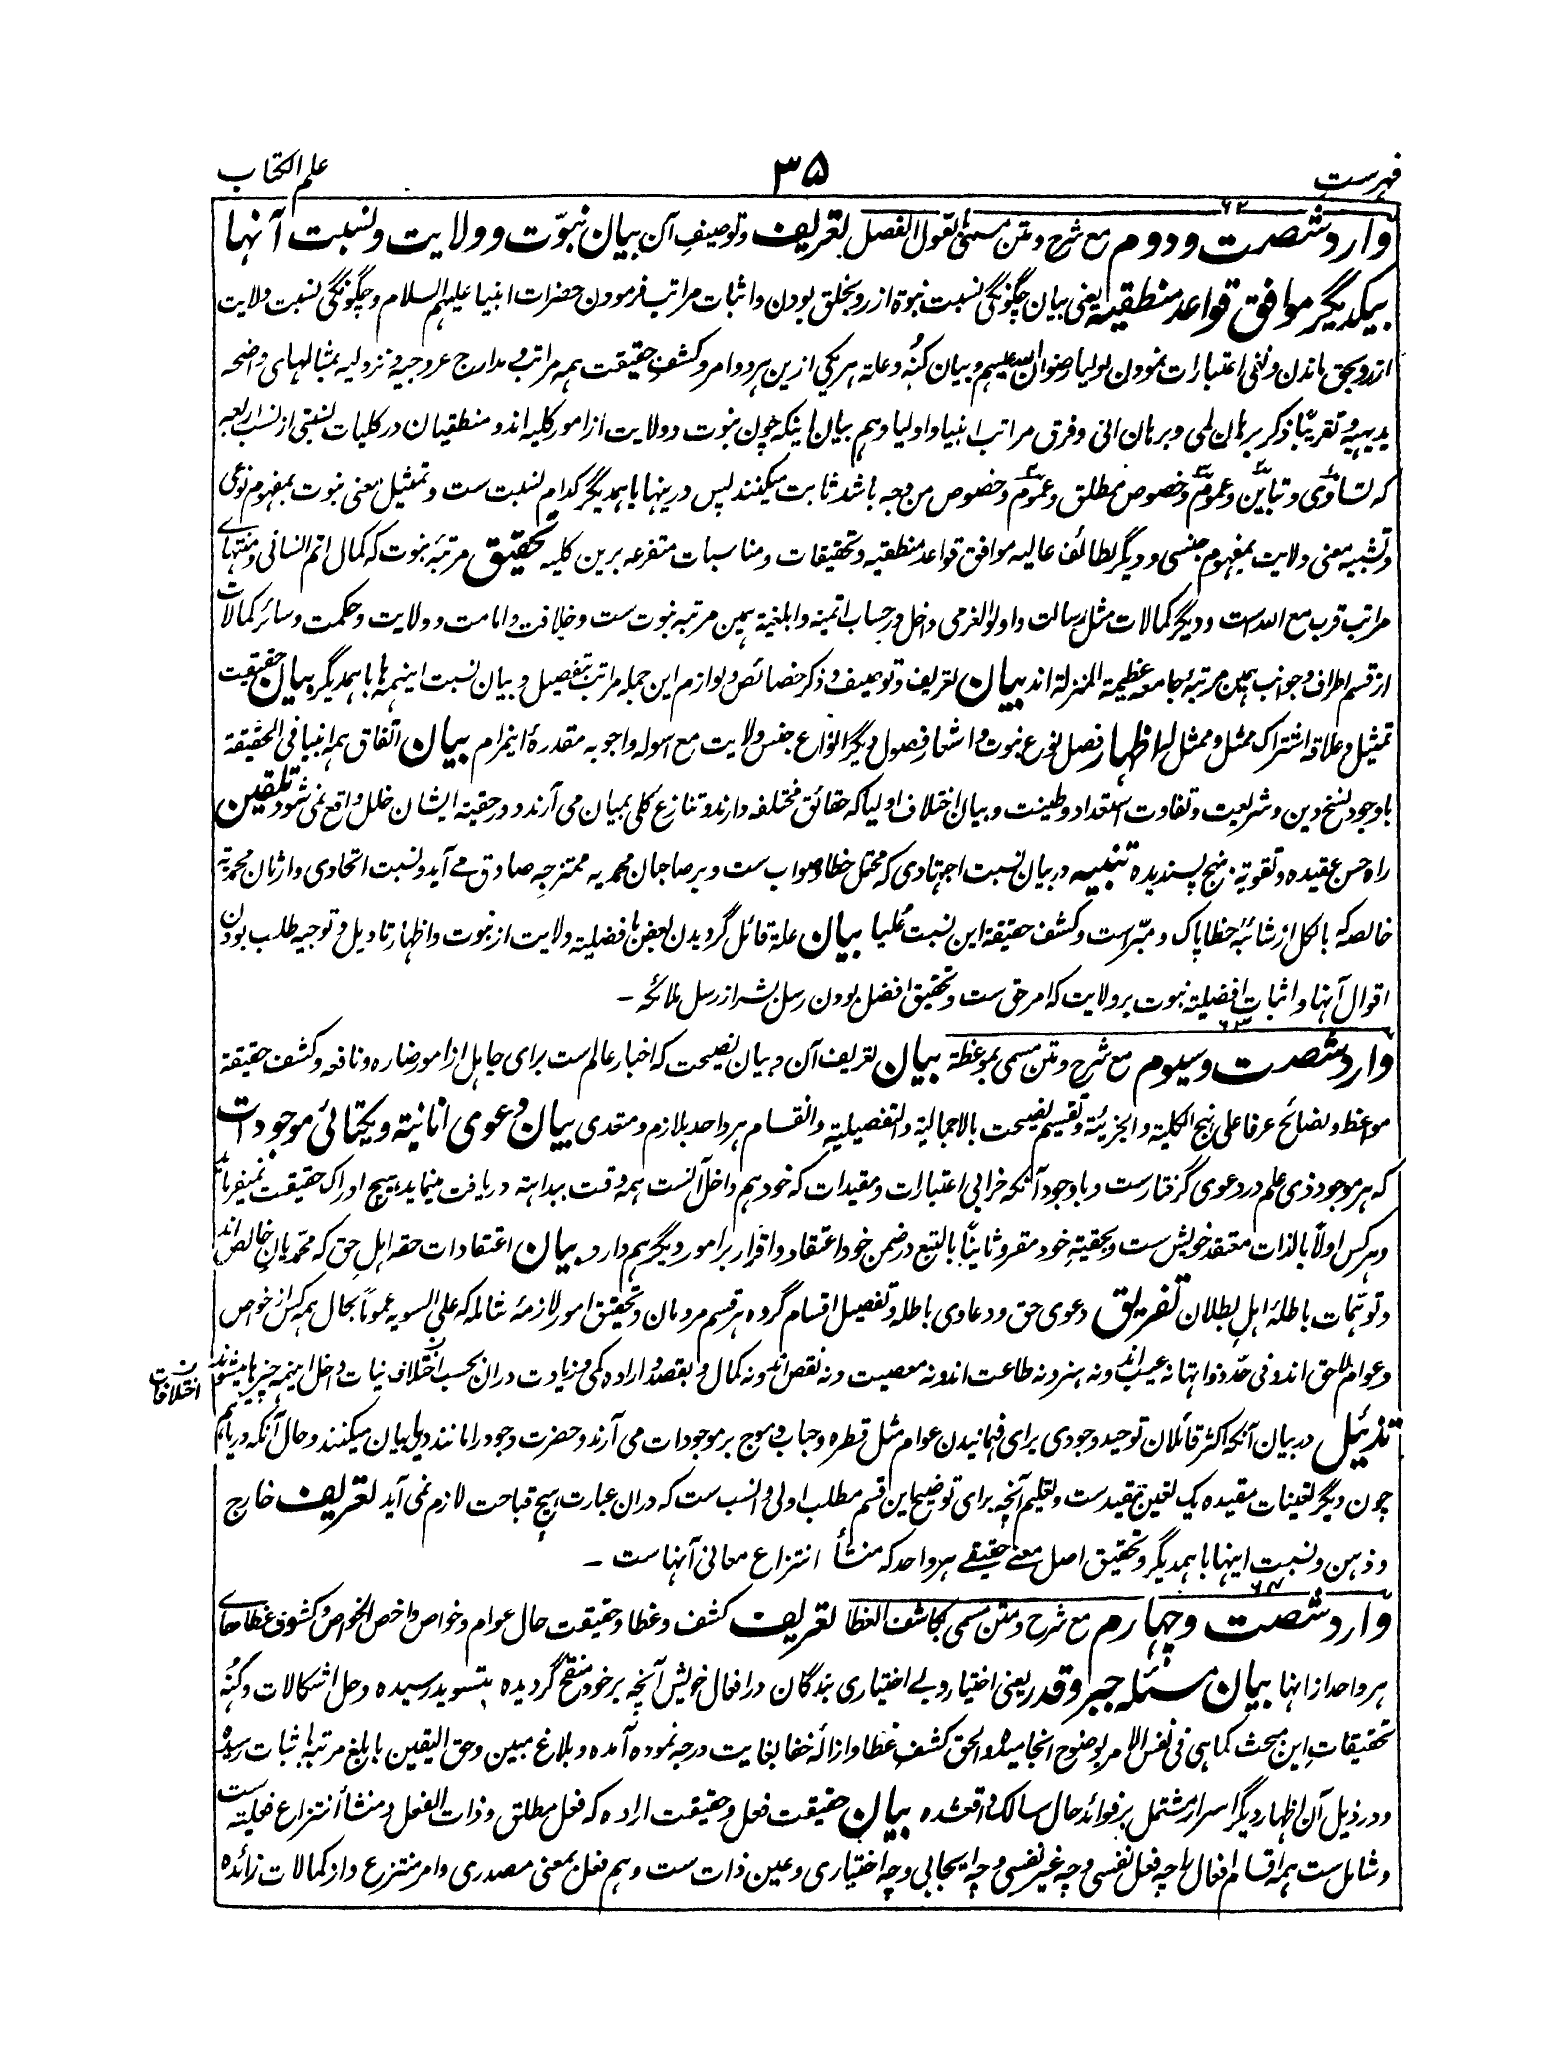 فہرست
۳۵
علم الکتاب
۶۲
وارد شصت و دوم مع شرح و متن مسمیٰ بقول الفصل تعریف و توصیف آن بیان نبوّت و ولایت و نسبت آنها
بیکدیگر موافق قواعد منطقیه یعنی بیان چگونگی نسبت نبوة از رو بخلق بودن و اثبات مراتب فرمودن حضرات انبیا علیهم السلام و چگونگی نسبت ولایت
از رو بحق ماندن و نفی اعتبارات نمودن اولیا رضوان الله علیهم و بیان کنُه و علة هر یکی ازین هر دو امر و کشف حقیقت همه مراتب و مدارج عروجیه و نزولیه بمثالهای واضحه
بدیهیه و تقریبًا ذکر برهان لمی و برهان انی و فرق مراتب انبیا و اولیا و هم بیان اینکه چون نبوت و ولایت از امور کلیه اند و منطقیان در کلیات نسبتی از نسب اربعه
که تساوی و تباین و عموم و خصوص مطلق و عموم و خصوص من وجه باشد ثابت میکنند پس درینها با همدیگر کدام نسبت ست و تمثیل معنی نبوت بمفهوم نوعی
و تشبیه معنی ولایت بمفهوم جنسی و دیگر لطائف عالیه موافق قواعد منطقیه و تحقیقات و مناسبات متفرعه برین کلیه تحقیق مرتبۂ نبوت که کمال اتم انسانی و منتهای
مراتب قرب مع الله است و دیگر کمالات مثل رسالت و اولوالعزمی داخل در حساب اتمیته و ابلغیة همین مرتبه نبوت ست و خلافت و امامت و ولایت و حکمت و سائر کمالات
از قسم اطراف و جوانب همین مرتبۂ جامعه عظیمة المنزلة اند بیان تعریف و توصیف و ذکر خصائص و لوازم این جمله مراتب بتفصیل و بیان نسبت اینهمه ها با همدیگر بیان حقیقیت
تمثیل و علاقه اشتراک ممثل و ممثل له اظهار فصل نوع نبوت و اشعار فصول دیگر انواع جنس ولایت مع اسوله و اجوبه مقدرۂ اینمرام بیان اتفاق همه انبیا فی الحقیقة
باوجود نسخ دین و شریعت و تفاوت استعداد و طینت و بیان اختلاف اولیا که حقائق مختلفه دارند و تنازع کلی بمیان می آرند و در حقیة ایشان خلل واقع نمی شود تلقین
راه حسن عقیده و تقویة نهج پسندیده تنبیه در بیان نسبت اجتهادی که محتمل خطا و صواب ست و بر صاحبان محمدیه ممتزجه صادق مے آید و نسبت اتحادی وارثان محمدیه
خالصه که بالکل از شائبۂ خطا پاک و مبرّاست و کشف حقیقة این نسبت علیا بیان علة قائل گردیدن بعض بافضلیة ولایت از نبوت و اظهار تاویل و توجیه طلب بودن
اقوال آنها و اثبات افضلیة نبوت بر ولایت که امر حق ست و تحقیق افضل بودن رسل بشر از رسل ملائکه ـ
۶۳
وارد شصت و سیوم مع شرح و متن مسمی بموعظة بیان تعریف آن و بیان نصیحت که اخبار عالم ست برای جاهل از امور ضاره و نافعه و کشف حقیقة
مواعظ و نصائح عرفا علی نهج الکلیة و الجزئیة و تقسیم نصیحت بالاجمالیة و التفصیلیة و انقسام هر واحد بلازم و متعدی بیان دعوی انانیة و یکتائی موجودات
که هر موجود ذی علم در دعوی گرفتار ست و باوجود آنکه خرابی اعتبارات و مقیدات که خود هم داخل آنست همه وقت ببداهته دریافت مینماید هیچ ادراک حقیقت نمیفرماید
و هر کس اولًا بالذات معتقد خویش ست و بحقیة خود مقر و ثانیًا بالتبع در ضمن خود اعتقاد و اقرار بر امور دیگر هم دارد بیان اعتقادات حقه اهل حق که محمّدیان خالص اند
و توهمات باطلۂ اهل بطلان تفریق دعوی حق و دعاوی باطله و تفصیل اقسام گروه هر قسم مردمان و تحقیق امور لازمۂ شامله که علی السویه عموما بحال همه کس از خواص
و عوام لاحق اند و فی حدّ ذواتها نه عیب اند و نه هنر و نه طاعت اند و نه معصیت و نه نقص اند و نه کمال و بقصد و اراده کمی و زیادت دران بحسب اختلاف نیات داخل اینهمه چیزها میشوند
اختلافات
تذئیل در بیان آنکه اکثر قائلان توحید وجودی برای فهمانیدن عوام مثل قطره و حباب و موج بر موجودات می آرند و حضرت وجود را مانند دریا بیان میکنند و حال آنکه دریا هم
چون دیگر تعینات مقیده یک تعین مقید ست و تعلیم آنچه برای توضیح این قسم مطلب اولی و انسب ست که دران عبارت هیچ قباحت لازم نمی آید تعریف خارج
و ذهن و نسبت اینها با همدیگر و تحقیق اصل معنے حقیقے هر واحد که منشأ انتزاع معانی آنهاست ـ
۶۴
وارد شصت و چهارم مع شرح و متن مسمی بکاشف الغطا تعریف کشف و غطا و حقیقت حال عوام و خواص و اخص الخواص و کشوف غطاءهای
هر واحد از انها بیان مسئله جبر و قدر یعنی اختیار و بے اختیاری بندگان در افعال خویش آنچه بر خود منقح گردیده بتسوید رسیده و حل اشکالات و کُنه
تحقیقات این مبحث کما هی فی نفس الامر بوضوح انجامیده و الحق کشف غطا و ازالۂ خفا بغایت درجه نموده آمده و بلاغ مبین و حق الیقین بابلغ مرتبه باثبات رسیده
و در ذیل آن اظهار دیگر اسرار مشتمل بر فوائد حال سالک واقعشده بیان حقیقت فعل و حقیقت اراده که فعل مطلق و ذات الفعل و منشأ انتزاع فعلیة ست
و شامل ست همه اقسام افعال را چه فعل نفسی و چه غیر نفسی و چه ایجابی و چه اختیاری و عین ذات ست و هم فعل بمعنی مصدری و امر منتزع و از کمالات زائده